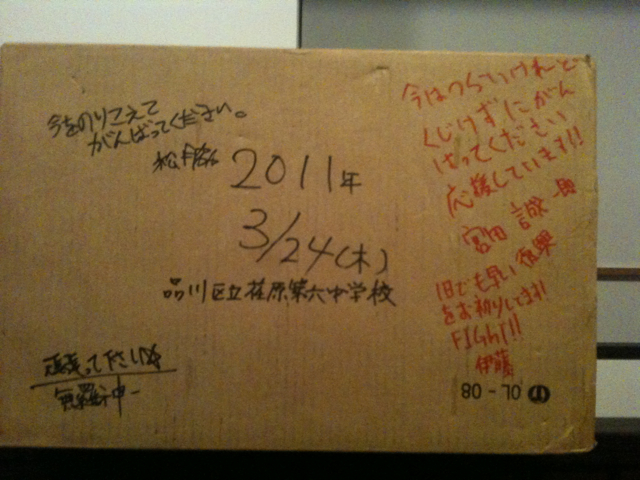 今をのりこえて
がんばってください。
2011年
3/24(木)
品川区立荏原第六中学校
今はつらいけれど
くじけずにがん
ばってください
応援しています!!
宮田 誠
一日でも早い復興
をお祈りしてます!
FIGHT!!
伊藤
頑張って下さい
OL-08